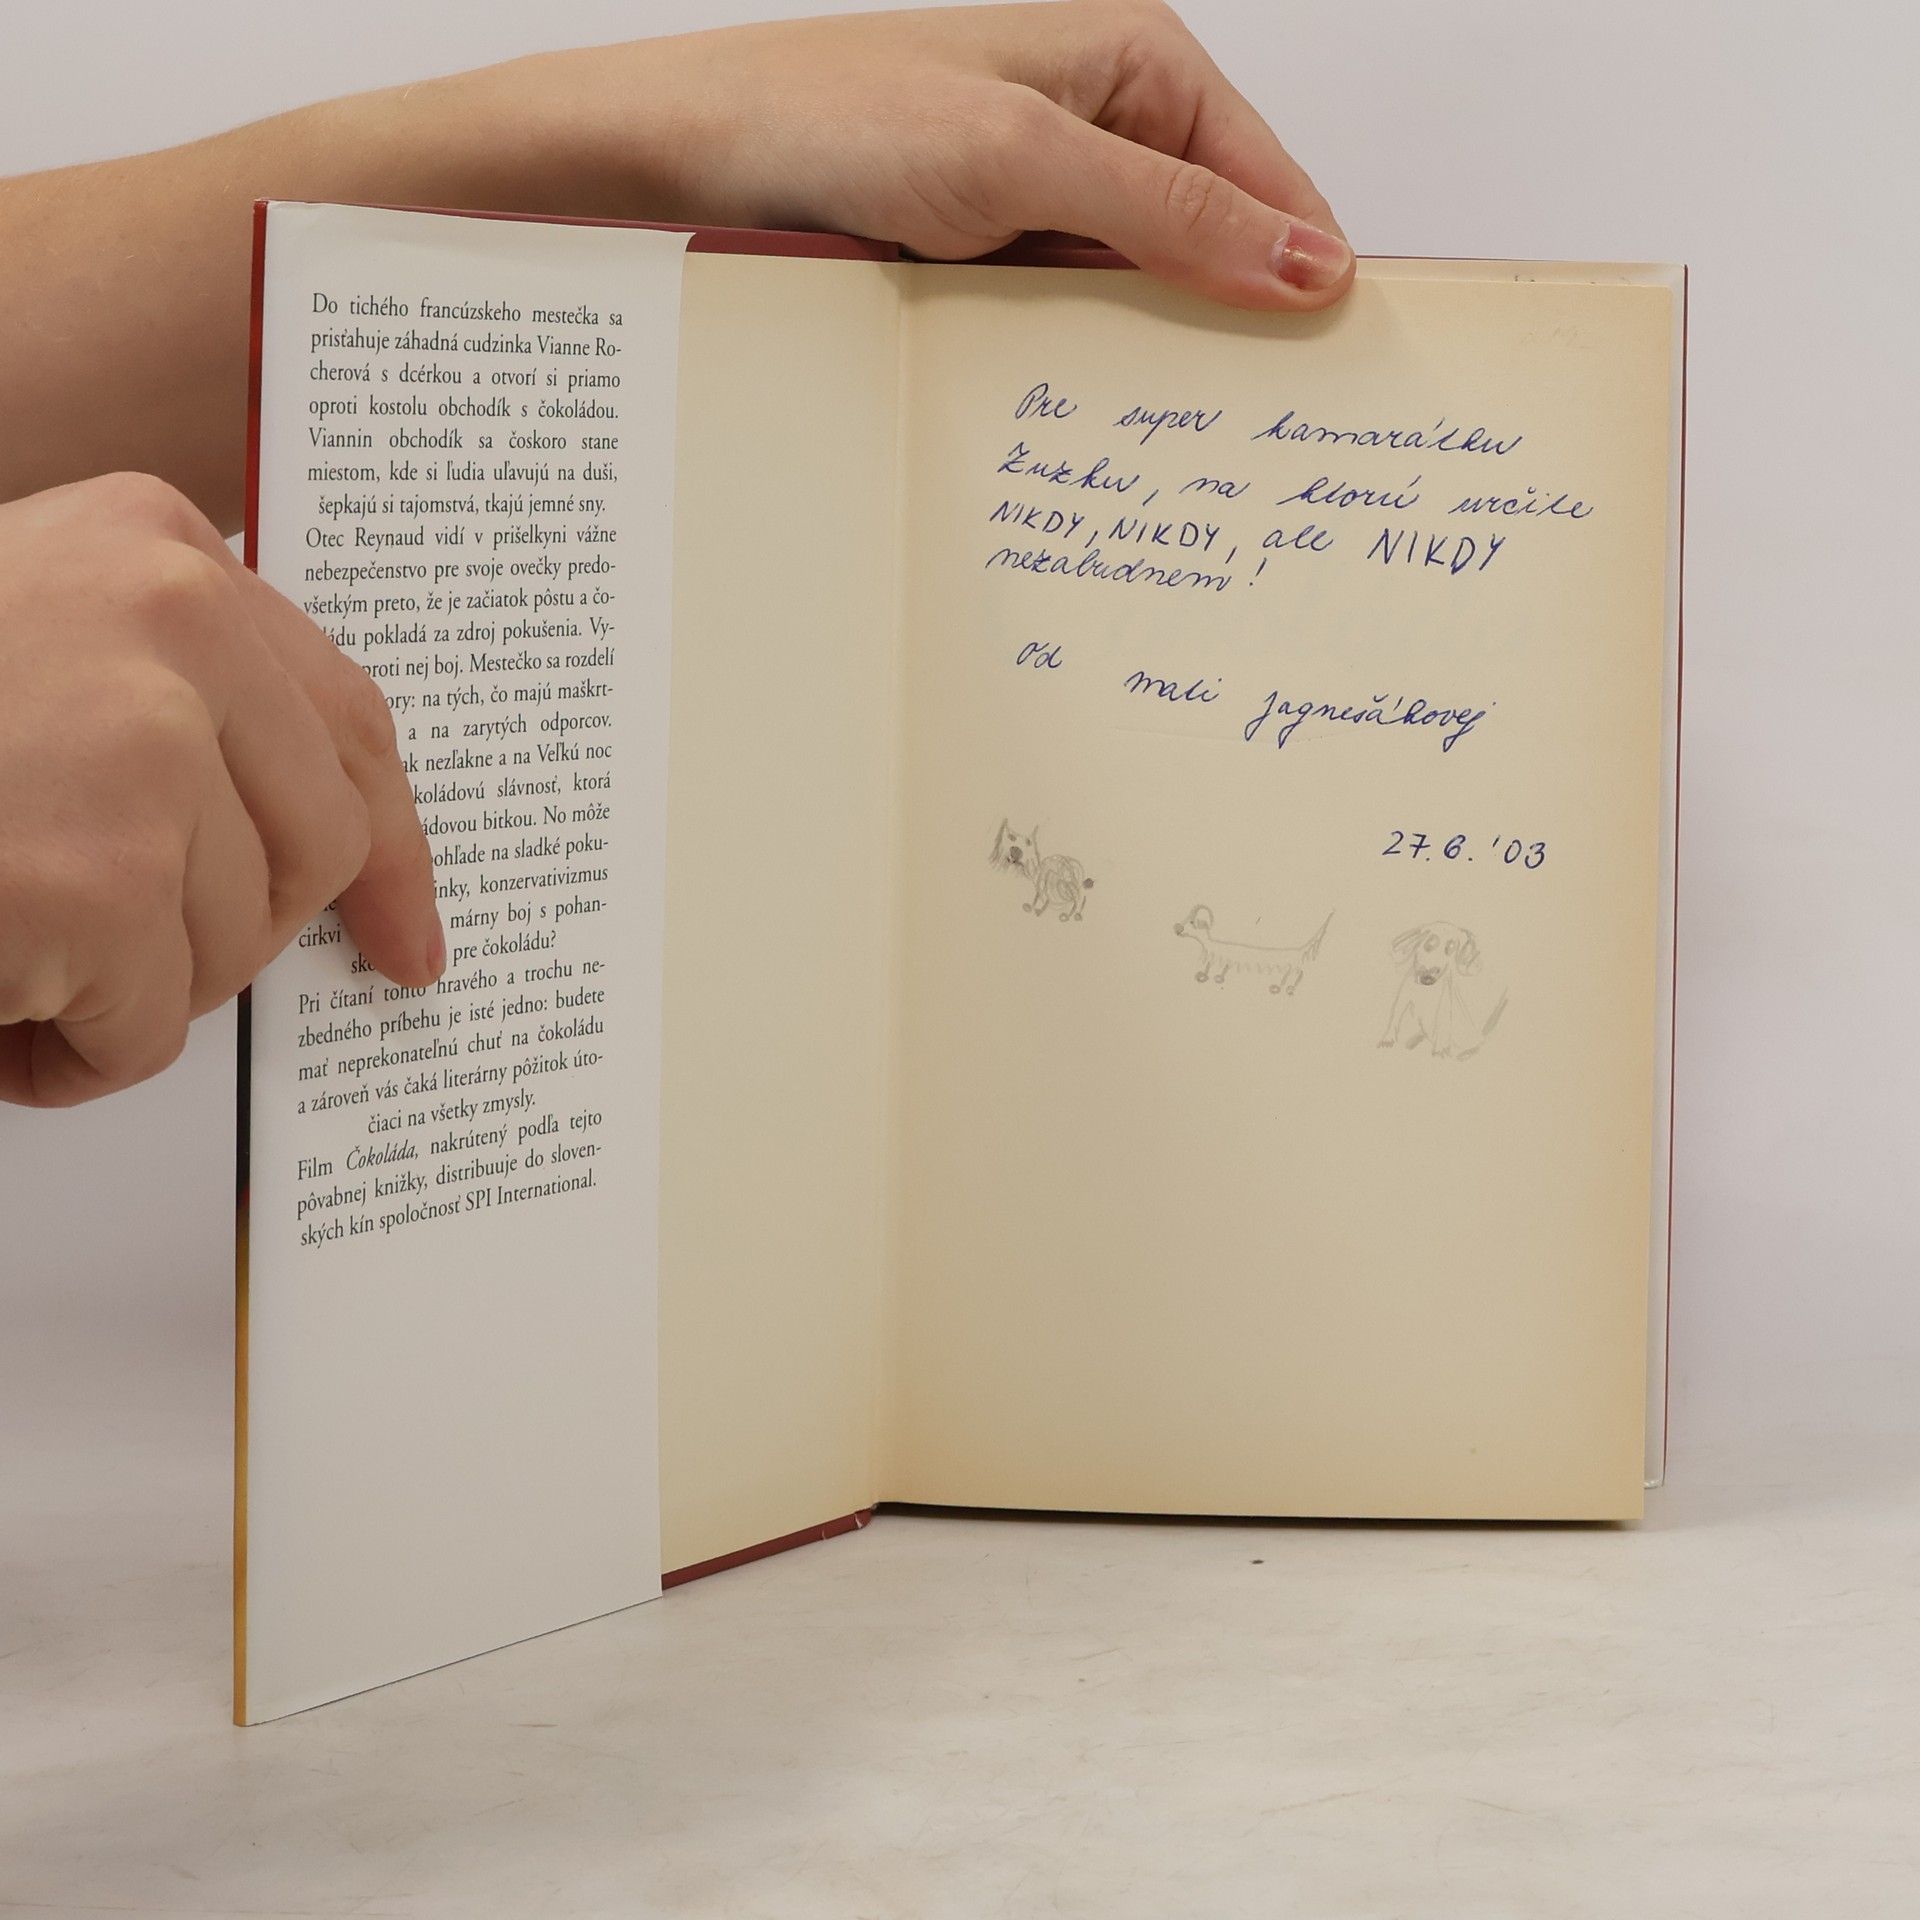 Do tichého francúzskeho mestečka sa
prisťahuje záhadná cudzinka Vianne Ro-
cherová s dcérkou a otvorí si priamo
oproti kostolu obchodík s čokoládou.
Viannin obchodík sa čoskoro stane
miestom, kde si ľudia uľavujú na duši,
šepkajú si tajomstvá, tkajú jemné sny.
Otec Reynaud vidí v prišelkyni vážne
nebezpečenstvo pre svoje ovečky predo-
všetkým preto, že je začiatok pôstu a čo-
ládu pokladá za zdroj pokušenia. Vy-
proti nej boj. Mestečko sa rozdelí
ory: na tých, čo majú maškrt-
a na zarytých odporcov.
ak nezľakne a na Veľkú noc
koládovú slávnosť, ktorá
ádovou bitkou. No môže
ohľade na sladké poku-
inky, konzervativizmus
cirkvi márny boj s pohan-
pre čokoládu?
Pri čítaní tohto hravého a trochu ne-
zbedného príbehu je isté jedno: budete
mať neprekonateľnú chuť na čokoládu
a zároveň vás čaká literárny pôžitok úto-
čiaci na všetky zmysly.
Film Čokoláda, nakrútený podľa tejto
pôvabnej knižky, distribuuje do sloven-
ských kín spoločnosť SPI International.
Pre super kamarátku
Zuzku, na ktorú určite
NIKDY, NIKDY, ale NIKDY
nezabudnem!
Od
mati Jagnešákovej
27.6.'03